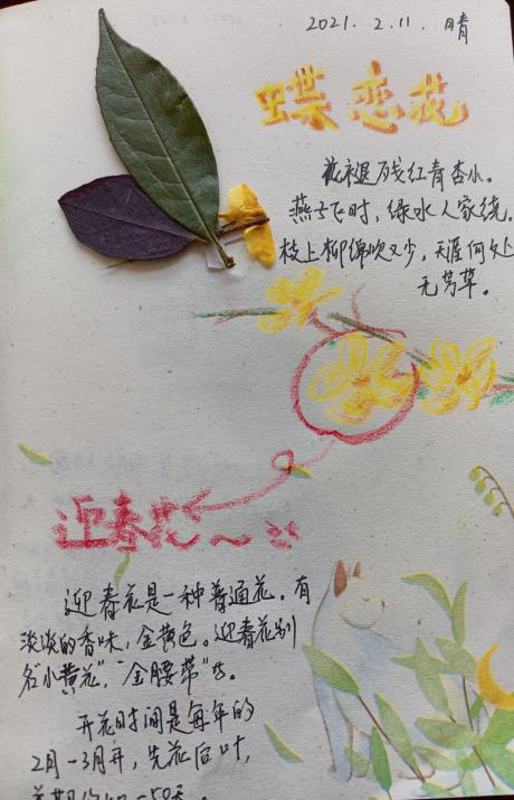 2021. 2.11. 晴
蝶恋花
花褪残红青杏小。
燕子飞时,绿水人家绕。
枝上柳绵吹又少,天涯何处
无芳草。
迎春花~
迎春花是一种普通花。有
淡淡的香味,金黄色。迎春花别
名"小黄花","金腰带"
开花时间是每年的
2月-3月开,先花后叶,
花期约40-50天。